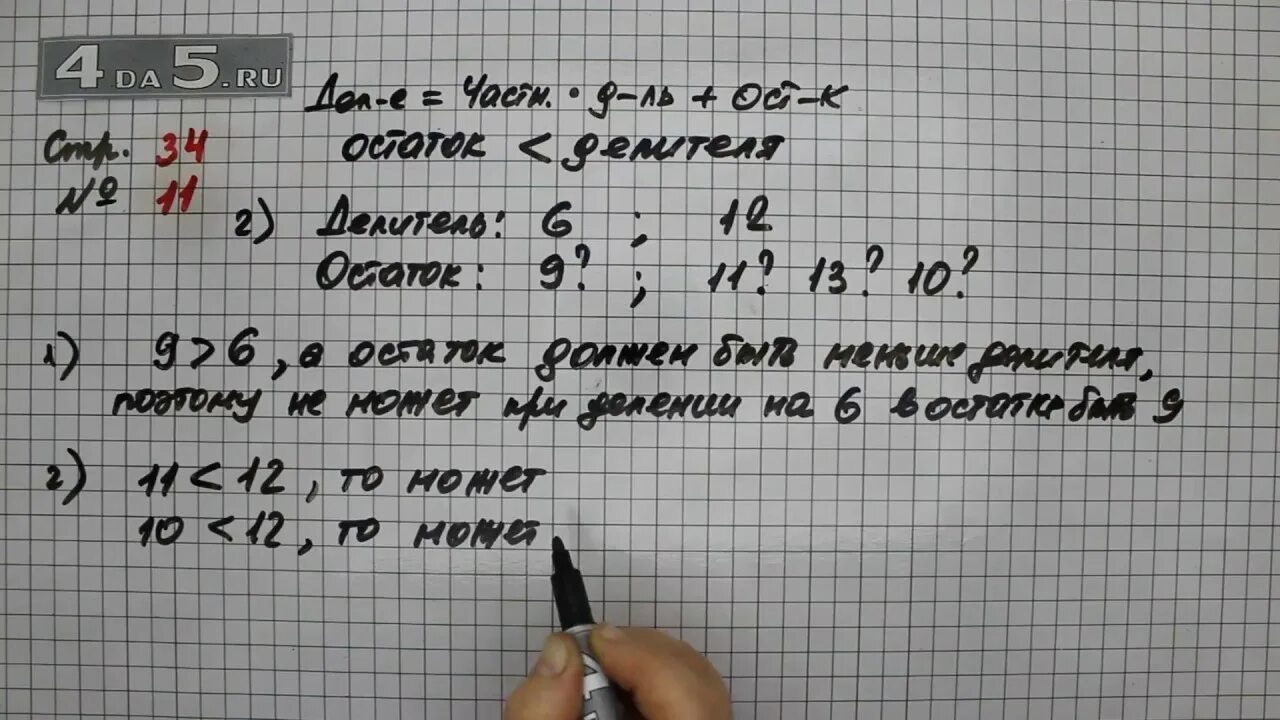 4DA5.RU
Дел-е = Частн. · д-ль + Ост-к
Стр. 34
остаток < делителя
№ 11
2) Делитель: 6 ; 12
Остаток: 9? ; 11? 13? 10?
1) 9 > 6, а остаток должен быть меньше делителя,
поэтому не может при делении на 6 в остатке быть 9
2) 11 < 12, то может
10 < 12, то может